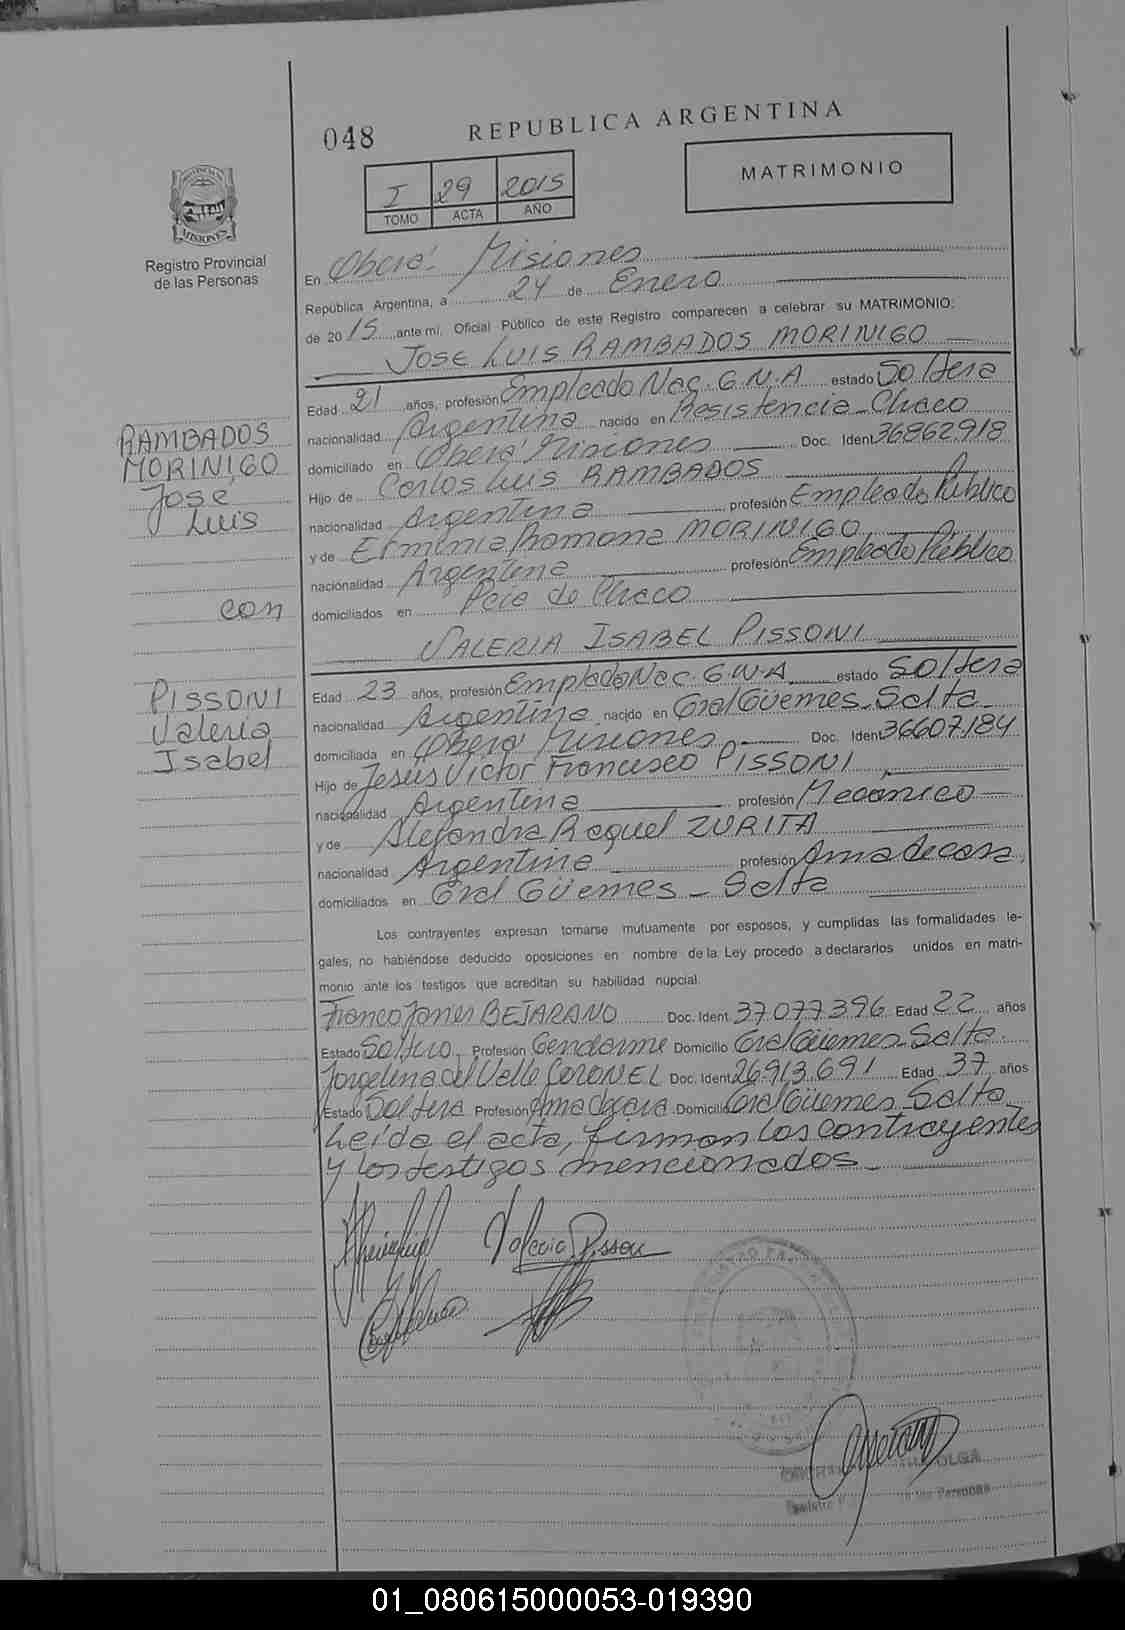 048
REPUBLICA ARGENTINA
MATRIMONIO
I 29 2015
TOMO ACTA AÑO
PROVINCIA DE
MISIONES
Registro Provincial
de las Personas
En Oberá Misiones
República Argentina, a 24 de Enero
de 2015, ante mí, Oficial Público de este Registro comparecen a celebrar su MATRIMONIO:
JOSE LUIS RAMBADOS MORINIGO
Edad 21 años, profesión Empleado Nac. G.N.A estado Soltero
nacionalidad Argentina nacido en Resistencia - Chaco
domiciliado en Oberá Misiones Doc. Ident 36862918
Hijo de Carlos Luis RAMBADOS
nacionalidad Argentina profesión Empleado Público
y de Erminia Ramona MORINIGO
nacionalidad Argentina profesión Empleado Público
domiciliados en Pcia de Chaco
VALERIA ISABEL PISSONI
Edad 23 años, profesión Empleado Nac. G.N.A estado Soltera
nacionalidad Argentina nacido en Gral Güemes - Salta
domiciliada en Oberá Misiones Doc. Ident 36607184
Hijo de Jesús Victor Francisco PISSONI
nacionalidad Argentina profesión Mecánico
y de Alejandra Raquel ZURITA
nacionalidad Argentina profesión Ama de casa
domiciliados en Gral Güemes - Salta
RAMBADOS
MORINIGO
José
Luis
con
PISSONI
Valeria
Isabel
Los contrayentes expresan tomarse mutuamente por esposos, y cumplidas las formalidades le-
gales, no habiéndose deducido oposiciones en nombre de la Ley procedo a declararlos unidos en matri-
monio ante los testigos que acreditan su habilidad nupcial.
Franco Javier BEJARANO Doc. Ident. 37.077.396 Edad 22 años
Estado Soltero Profesión Gendarme Domicilio Gral Güemes - Salta
Jorgelina del Valle CORONEL Doc. Ident 26.913.691 Edad 37 años
Estado Soltera Profesión Ama de casa Domicilio Gral Güemes - Salta
Leída el acta, firman los contrayentes
y los testigos mencionados
Valeria Pissoni
OLGA
Registro de las Personas
01_080615000053-019390